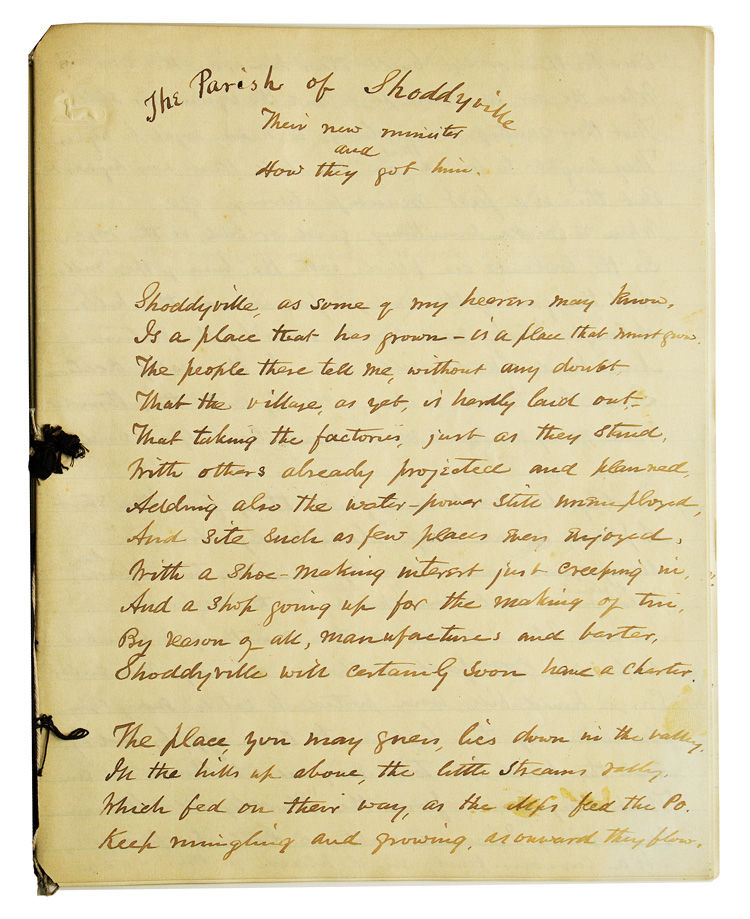 The Parish of Shoddyville
Their new minister
and
How they got him.
Shoddyville, as some of my hearers may know,
Is a place that has grown – is a place that must grow.
The people there tell me, without any doubt,
That the village, as yet, is hardly laid out,–
That taking the factories, just as they stand,
With others already projected and planned,
Adding also the water-power still unemployed,
And site such as few places ever enjoyed,
With a shoe-making interest just creeping in,
And a shop going up for the making of tin,
By reason of all, manufactures and barter,
Shoddyville will certainly soon have a charter.
The place, you may guess, lies down in the valley,
In the hills up above, the little streams rally,
Which fed on their way, as the Alps feed the Po,
Keep mingling and growing, as onward they flow.